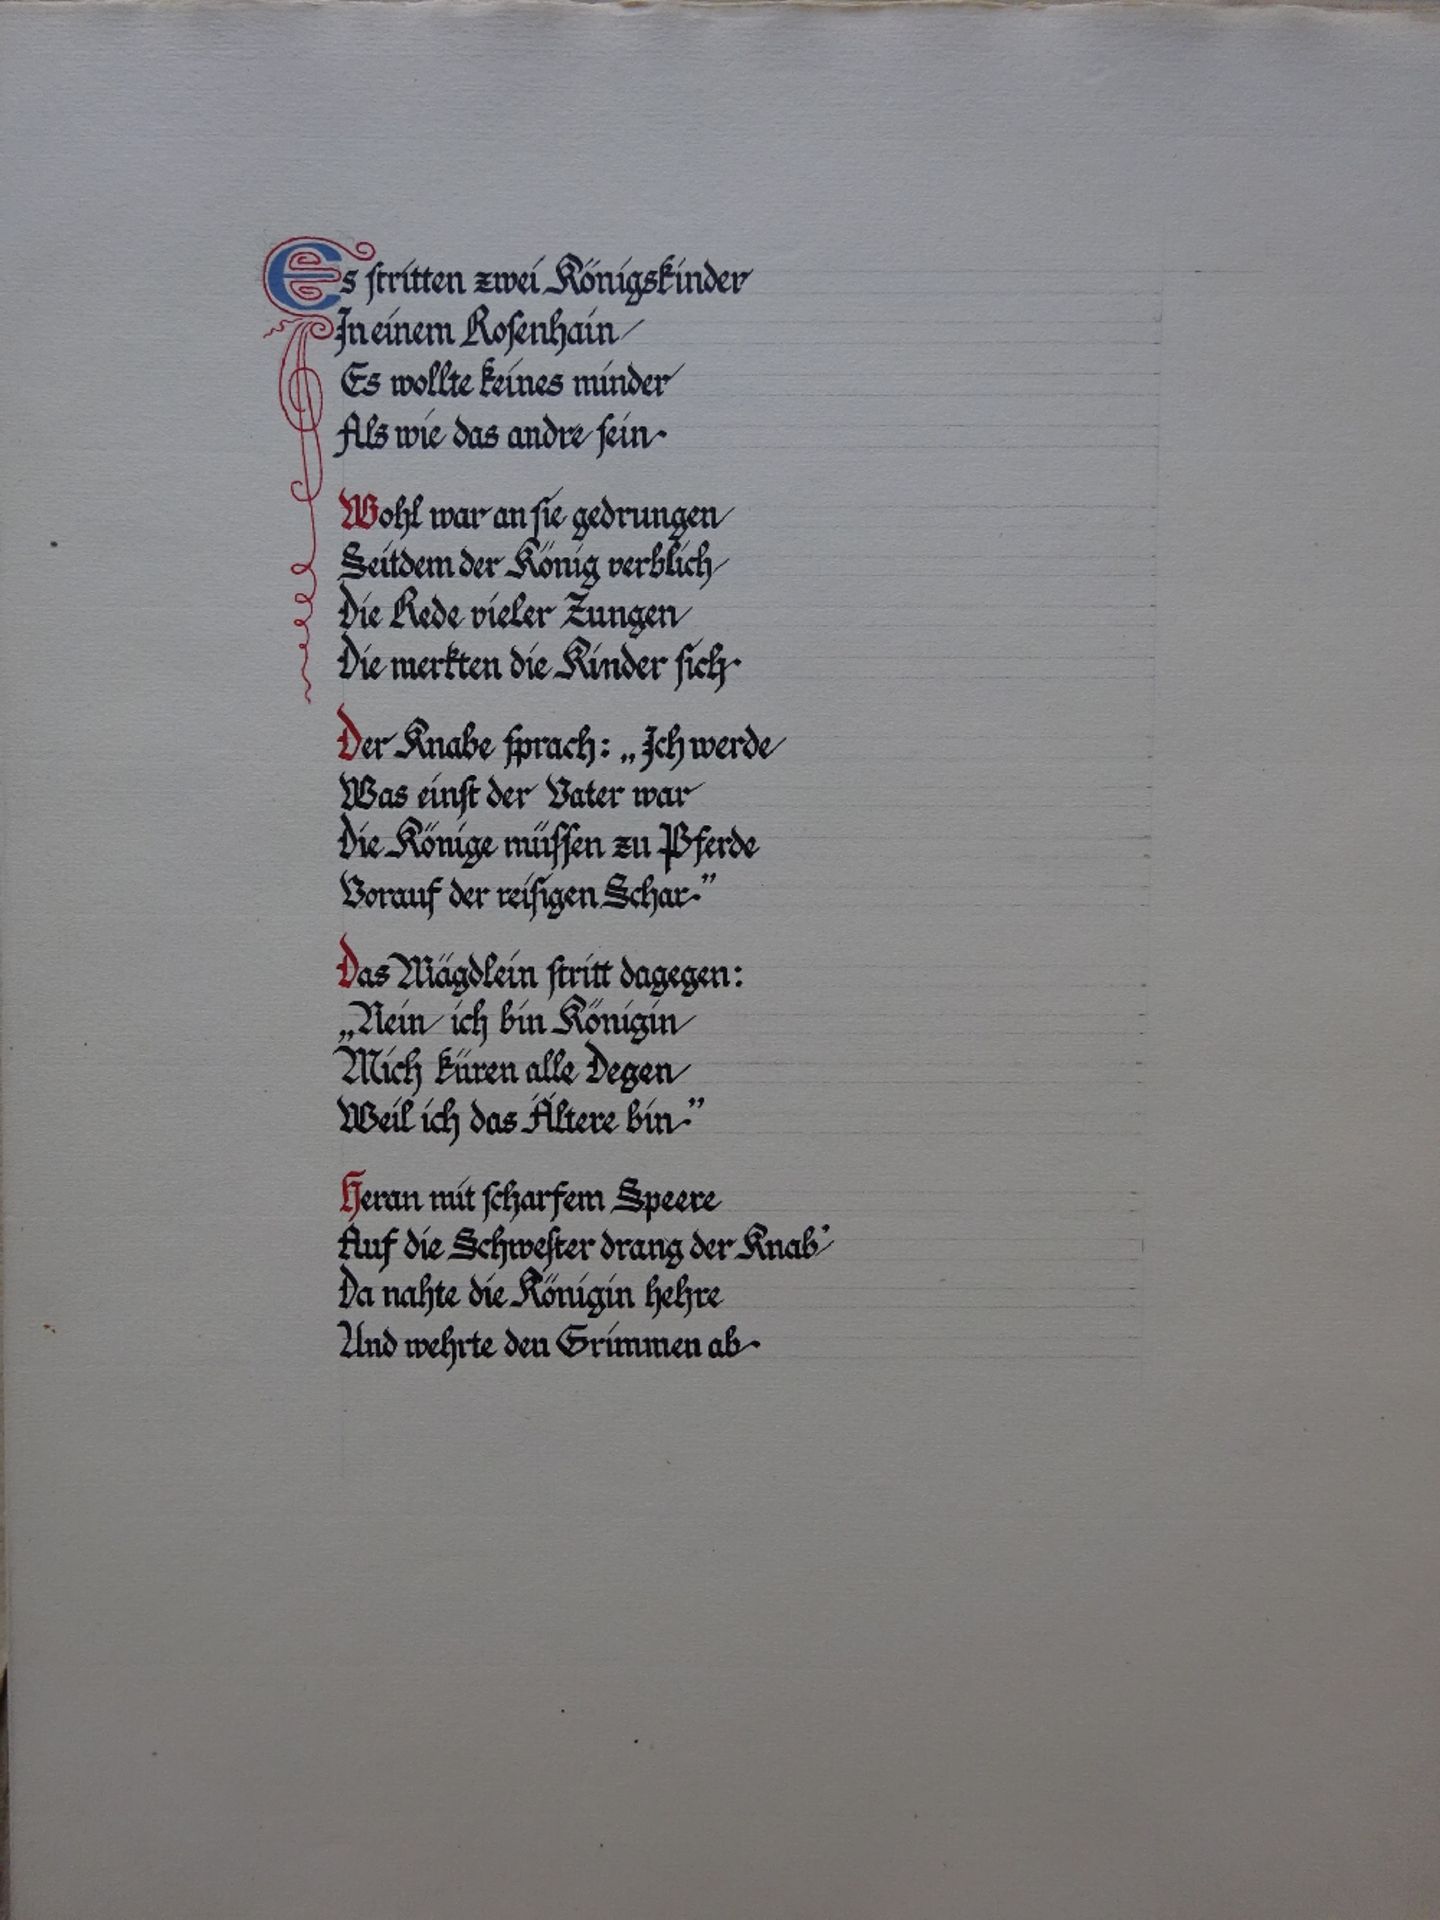 Es stritten zwei Königskinder
In einem Rosenhain/
Es wollte keines minder
Als wie das andre sein.
Wohl war an sie gedrungen
Seitdem der König verblich
Die Rede vieler Zungen
Die merkten die Kinder sich.
Der Knabe sprach: „Ich werde
Was einst der Vater war
Die Könige müssen zu Pferde
Vorauf der reisigen Schar.”
Das Mägdlein stritt dagegen:
„Nein/ ich bin Königin
Mich küren alle Degen
Weil ich das Ältere bin.”
Heran mit scharfem Speere
Auf die Schwester drang der Knab'
Da nahte die Königin hehre
Und wehrte den Grimmen ab.